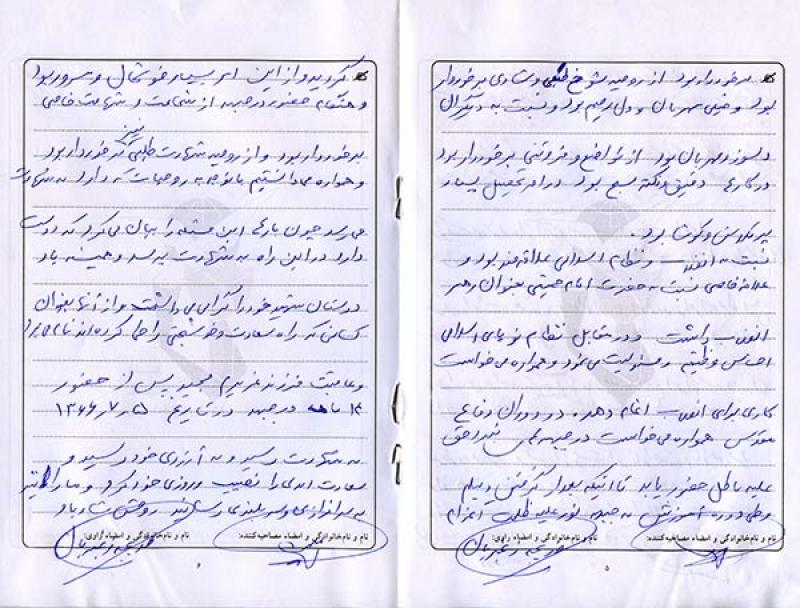 برخوردار بود از روحیه شوخ طبعی و شادی برخوردار
بود و خیلی مهربان و دل رحیم بود و نسبت به دیگران
دلسوز و مهربان بود از تواضع و فروتنی برخوردار بود
در کارها دقیق و نکته سنج بود در امر تحصیل بسیار
پر تلاش و کوشا بود.
نسبت به انقلاب و نظام اسلامی علاقه مند بود و
علاقه خاصی نسبت به حضرت امام خمینی بعنوان رهبر
انقلاب داشت و در مقابل نظام نوپای اسلامی
احساس وظیفه و مسئولیت می نمود و همواره می خواست
کاری برای انقلاب انجام دهد. در دوران دفاع
مقدس همواره می خواست در جبهه های نبرد حق
علیه باطل حضور یابد تا اینکه بعد از گرفتن دیپلم
و طی دوره آموزش به جبهه نور علیه ظلمت اعزام
نام و نام‌خانوادگی و امضاء مصاحبه‌کننده:
نام و نام‌خانوادگی و امضاء راوی:
گردید و از این امر بسیار خوشحال و مسرور بود
و هنگام حضور در جبهه از شجاعت و شهامت خاصی
برخوردار بود و از روحیه شهادت طلبی نیز برخوردار بود
و همواره ما دانستیم با توجه به روحیات که دارد به شهادت
می رسد چون بارها این مسئله را بیان می کرد که دوست
دارد در این راه به شهادت برسد و همیشه یاد
دوستان شهید خود را گرامی می داشت و از آنها بعنوان
کسانی که راه سعادت و خوشبختی را طی کرده اند نام می برد
و عاقبت فرزند عزیزم مجید پس از حضور
۱۴ ماهه در جبهه در تاریخ ۵ر۷ر۱۳۶۶
به شهادت رسید و به آرزوی خود رسید و
سعادت ابدی را نصیب روزی خود کرد و ما را نیز
به سرافرازی و سربلندی رساند روحش شاد باد
نام و نام‌خانوادگی و امضاء مصاحبه‌کننده:
نام و نام‌خانوادگی و امضاء راوی: